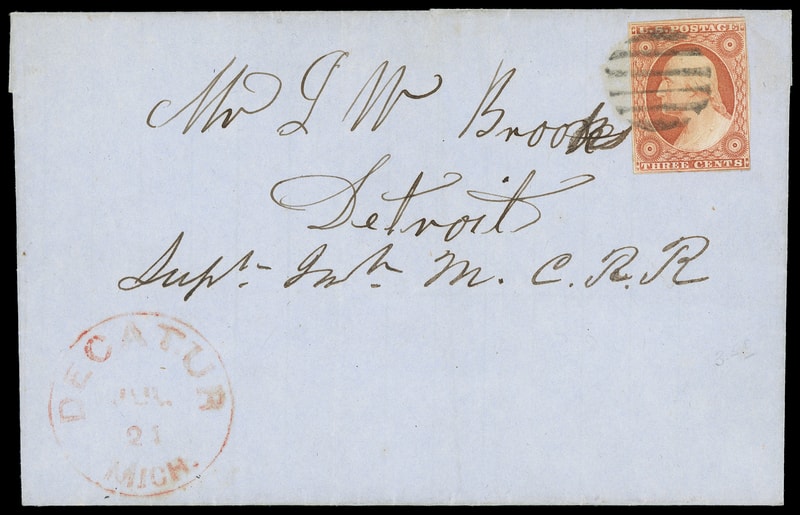 U.S. POSTAGE
THREE CENTS
Mr L W Brooks
Detroit
Supt. M. C. R. R
DECATUR
JUL.
21
MICH.